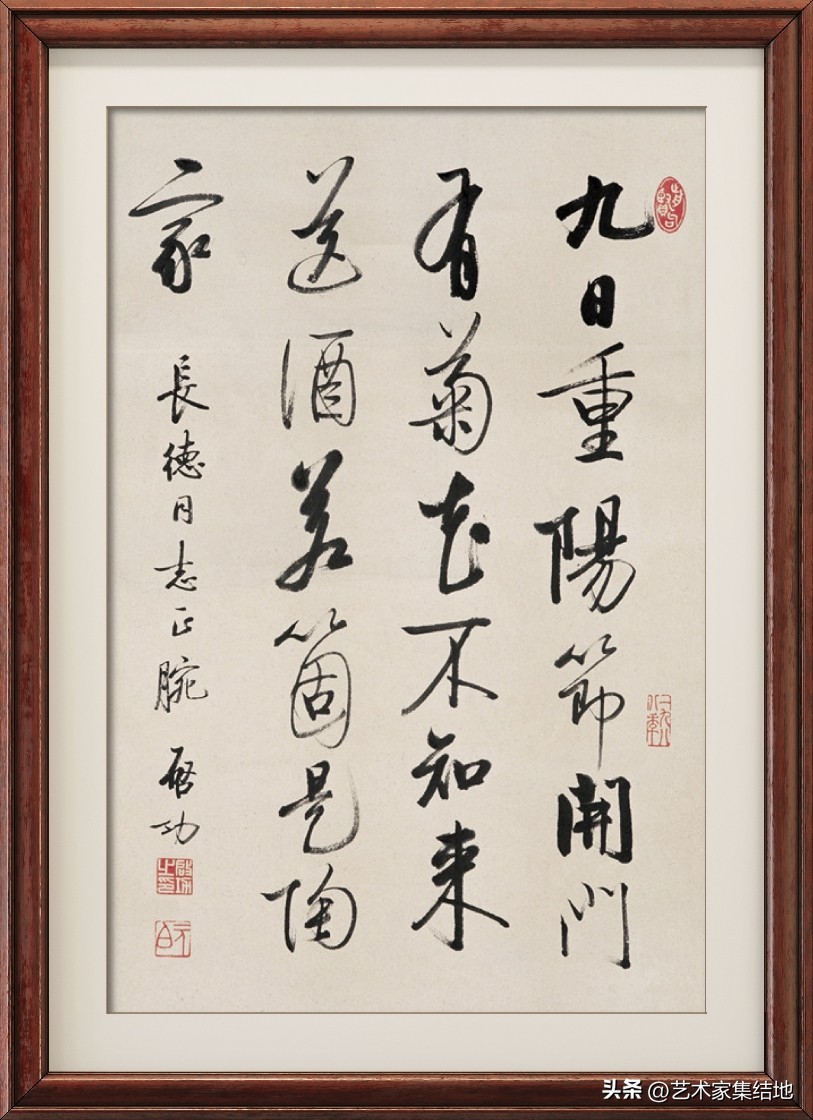 九日重陽節開門
有菊花不知来
送酒若箇是陶
家
長德同志正腕 啓功
啓功之印
元白
头条 @艺术家集结地